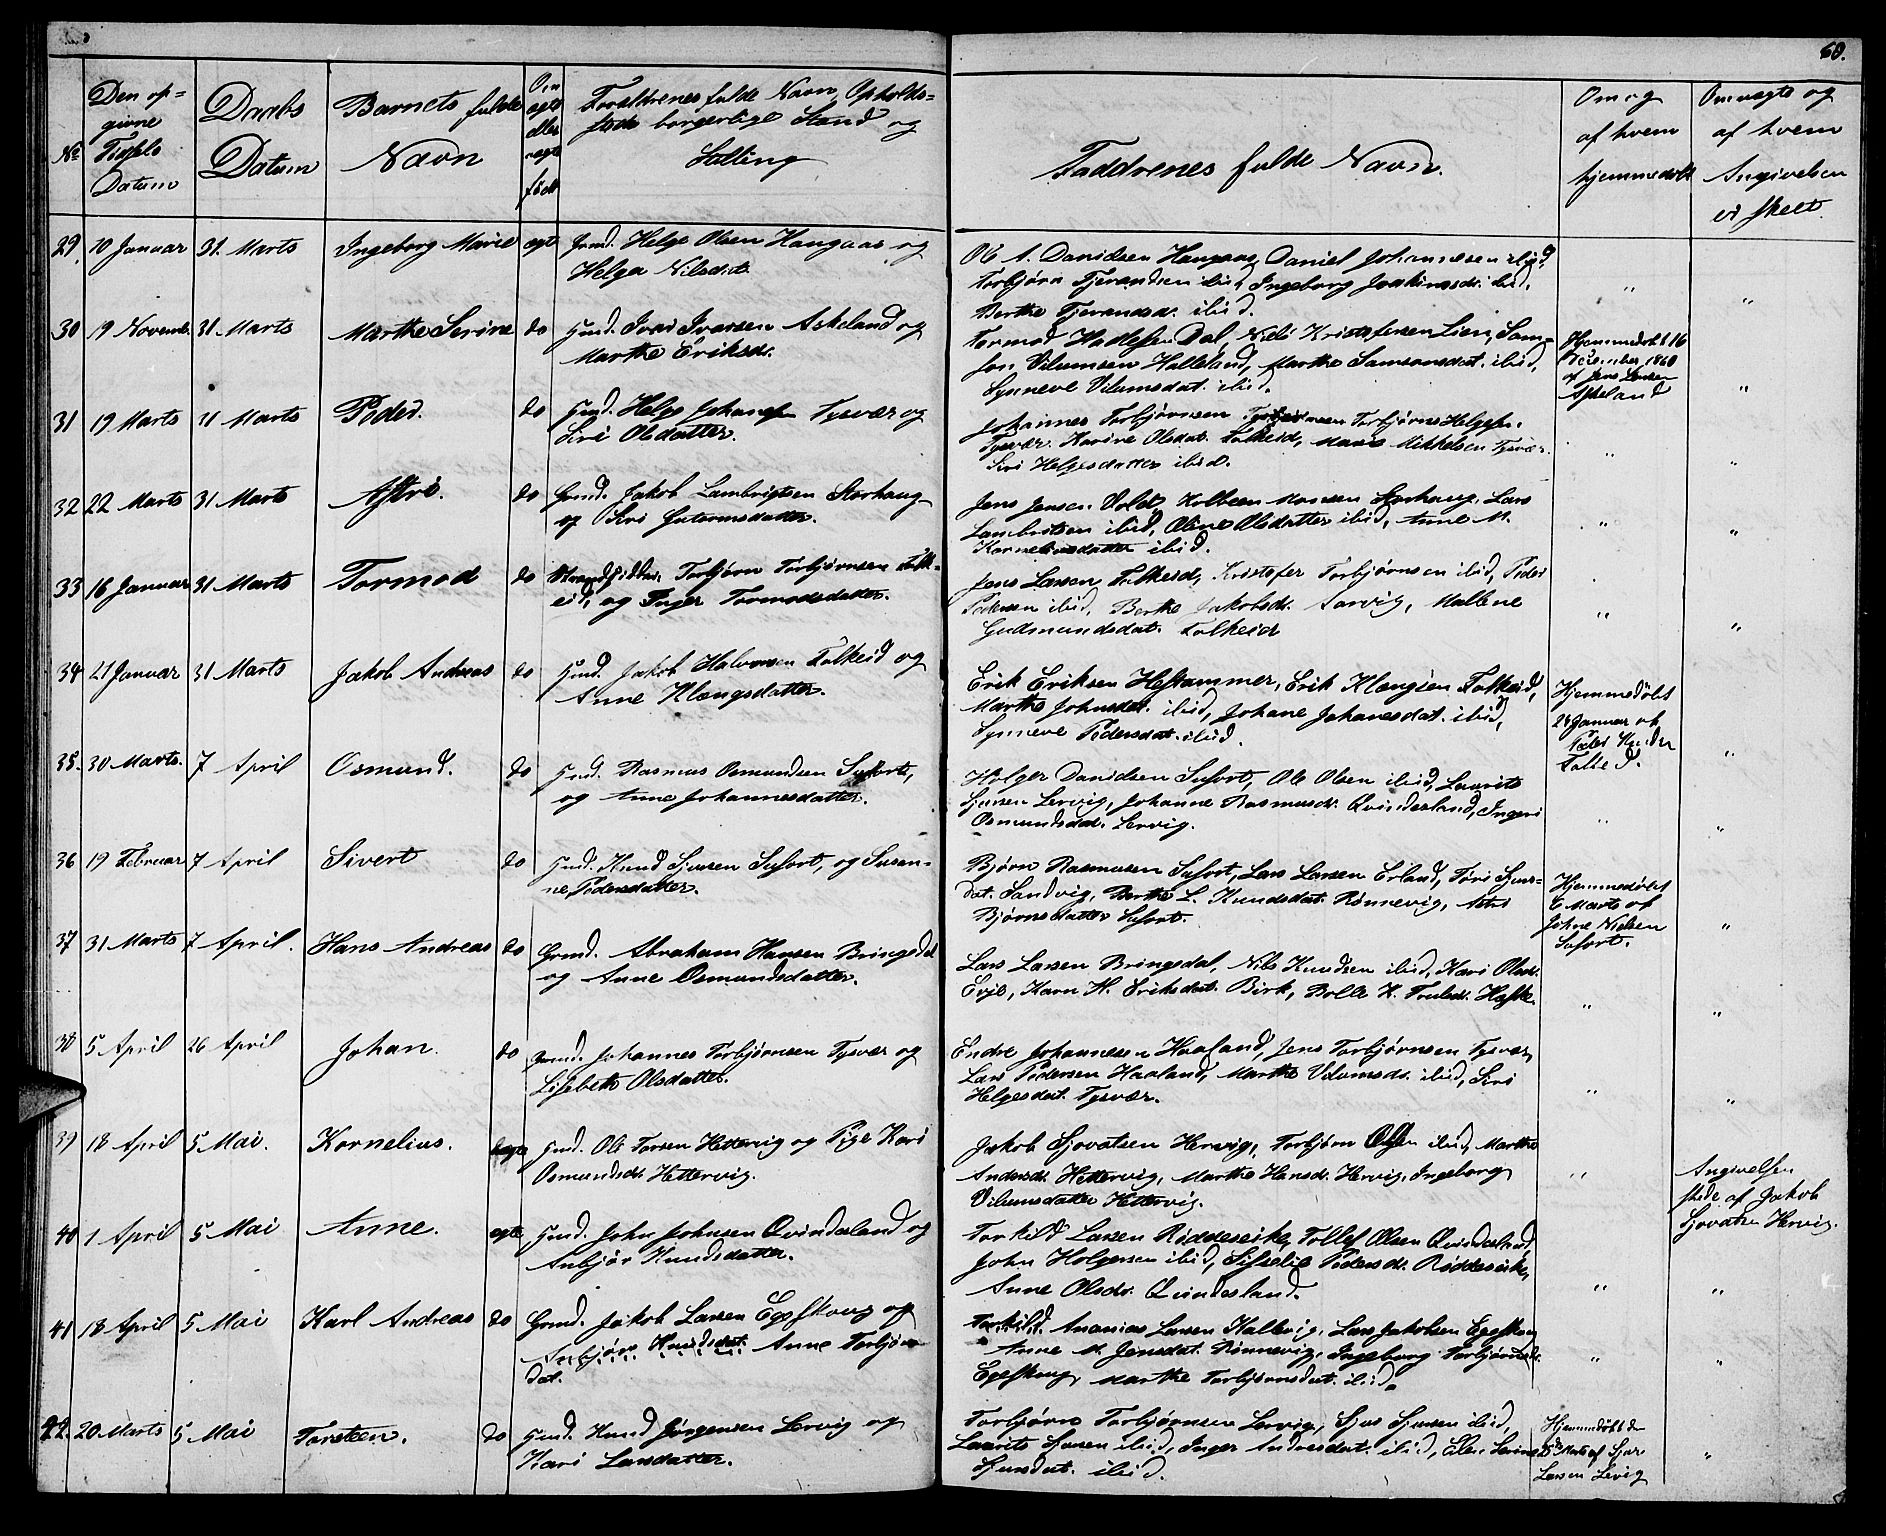 68.
Den op=
givne
Fødsels
Datum
No
Daabs
Datum
Barnets fulde
Navn
Om
egte
eller
uegte
født
Forældrenes fulde Navn, Opholds=
sted borgerlige Stand og
Stilling
Faddrenes fulde Navn.
Om og
af hvem
hjemmedøbt
Om uegte og
af hvem
Angivelsen
er skeet.
29. 10 Januar 31. Marts Ingeborg Marie egte Gmd. Helge Olsen Haugaas og
Helga Nilsdat.
Ole A. Davidsen Haugaas, Daniel Johannesen ibid.
Torbjørn Tjerandsen ibid, Ingeborg Joakimsdr. ibid.
Berthe Tjerandsdr. ibid. " "
30 19 Novemb. 31 Marts Marthe Serine do Gmd. Ivar Ivarsen Askeland og
Marthe Eriksdr.
Tormod Dal, Nils Kristofersen Lien, Sam=
son Vilumsen Halleland, Marthe Samsonsdat. ibid,
Synneve Vilumsdat. ibid.
Hjemmedøbt 16
December 1860
af Jens Larsen
Askeland "
31 19 Marts 31 Marts Peder. do Gmd. Helge Johansen Tysvær og
Siri Olsdatter.
Johannes Torbjørnsen Torbjørn Helges.
Tysvær. Karine Olsdat. Falkeid, Marie Mikkelsen Tysvær.
Siri Helgesdatter ibid. " "
32 22 Marts 31 Marts Astri. do Gmd. Jakob Lambrigtsen Storhaug
og Siri Gutormsdatter.
Jens Jensen Vold, Kolbeen Monsen Storhaug. Lars
Lambritsen ibid, Oline Olsdatter ibid, Anne M.
Korneliusdatter ibid. " "
33 16 Januar 31 Marts Tormod do Strandsidder Torbjørn Torbjørnsen Falk=
eid, og Inger Tormodsdatter.
Jens Larsen Falkeid, Kristofer Torbjørnsen ibid, Peder
Pedersen ibid, Berthe Jakobsdr. Aarvig, Mallene
Gudmundsdat. Falkeid " "
34 21 Januar 31 Marts Jakob Andreas do Gmd. Jakob Halvorsen Falkeid og
Anne Klængsdatter.
Erik Eriksen Hestammer, Erik Klængsen Falkeid,
Marthe Johnsdat. ibid, Johane Johanesdat. ibid,
Synneve Pedersdat. ibid.
Hjemmedøbt
24 Januar af
Peder
Falkeid. "
35. 30 Marts. 7 April Osmund. do Gmd. Rasmus Osmundsen Susort,
og Anne Johannesdatter.
Holger Davidsen Susort, Ole Olsen ibid, Laurits
Sjursen Lervig, Johanne Rasmusdr. Qvindesland, Ingeri
Osmundsdat. Lervig. " "
36 19 Februar 7 April Sivert do Gmd. Knud Sjursen Susort, og Susan=
ne Pedersdatter.
Bjørn Rasmusen Susort, Lars Larsen Erland, Tøri Sjurs=
dat. Sandvig, Berthe L. Knudsdat. Rønnevig, Astri
Bjørnsdatter Susort.
Hjemmedøbt
6 Marts af
Johne Nielsen
Susort. "
37 31 Marts 7 April. Hans Andreas do Gmd. Abraham Hansen Bringsdal
og Anne Osmundsdatter.
Lars Larsen Bringsdal, Nils Knudsen ibid, Kari Olsdr.
Evje, Karn H. Eriksdat. Birk, Bolle K. Hofte. " "
38 5 April 26 April Johan. do Gmd. Johannes Torbjørnsen Tysvær og
Lisebeth Olsdatter.
Endre Johannesen Haaland, Jens Torbjørnsen Tysvær,
Lars Pedersen Haaland, Marthe Vilumsdr. ibid, Siri
Helgesdat. Tysvær. " "
39 18 April 5 Mai. Kornelius. uegte Gmd. Ole Torsen Hettervig og Pige Kari
Osmundsdr. Hettervig.
Jakob Sjovatsen Hervig, Torbjørn Olsen ibid, Marthe
Andersdr. Hettervig, Marthe Hansdr. Hervig, Ingeborg
Vilumsdatter Hettervig. "
Angivelsen
skede af Jakob
Sjovatsen Hervig.
40 1 April 5 Mai Anne. egte Gmd. John Johnsen Qvindesland og
Anbjør Knudsdatter.
Torkild Larsen Røddesøike, Tollef Olsen Qvindesland,
John Holgersen ibid, Sisselie Pedersdr. Røddesøike,
Anne Olsdr. Qvindesland. " "
41 18 April 5 Mai Karl Andreas do Gmd. Jakob Larsen Egeskoug og
Anbjør Knudsdat. Anne Torbjørns
dat.
Torkild. Ananias Larsen Hallevig, Lars Jakobsen Egeskoug
Anne M. Jensdat. Rønnevig, Ingeborg Torbjørnsdr.
Egeskoug, Marthe Torbjørnsdat. ibid. " "
42. 20 Marts 5 Mai Torsteen. do Gmd. Knud Jørgensen Lervig og
Kari Larsdatter.
Torbjørn Torbjørnsen Lervig, Sjur Sjursen ibid,
Laurits Sjursen ibid, Inger Andreasdat. ibid, Elen Serine
Sjursdat. ibid.
Hjemmedøbt den
25de Marts af Sjur
Larsen Levig "